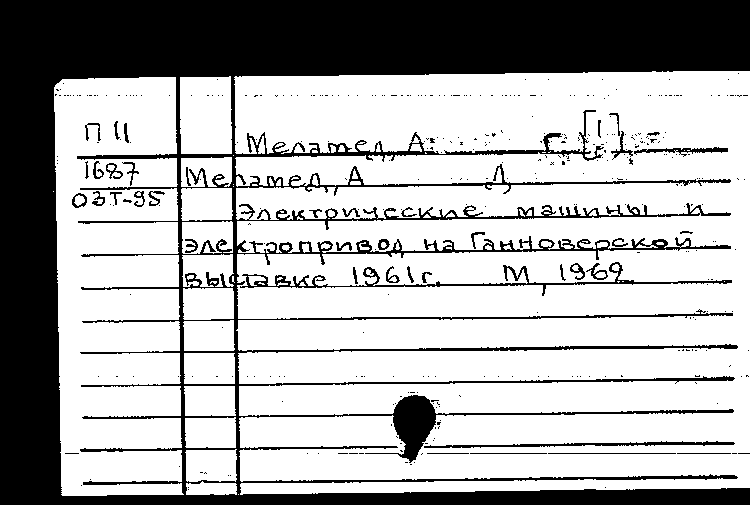 П 11
Меламед, А. [1]
1687
ОЗТ-95
Меламед, А Д
Электрические машины и
электропривод на Ганноверской
выставке 1961г. М, 1962